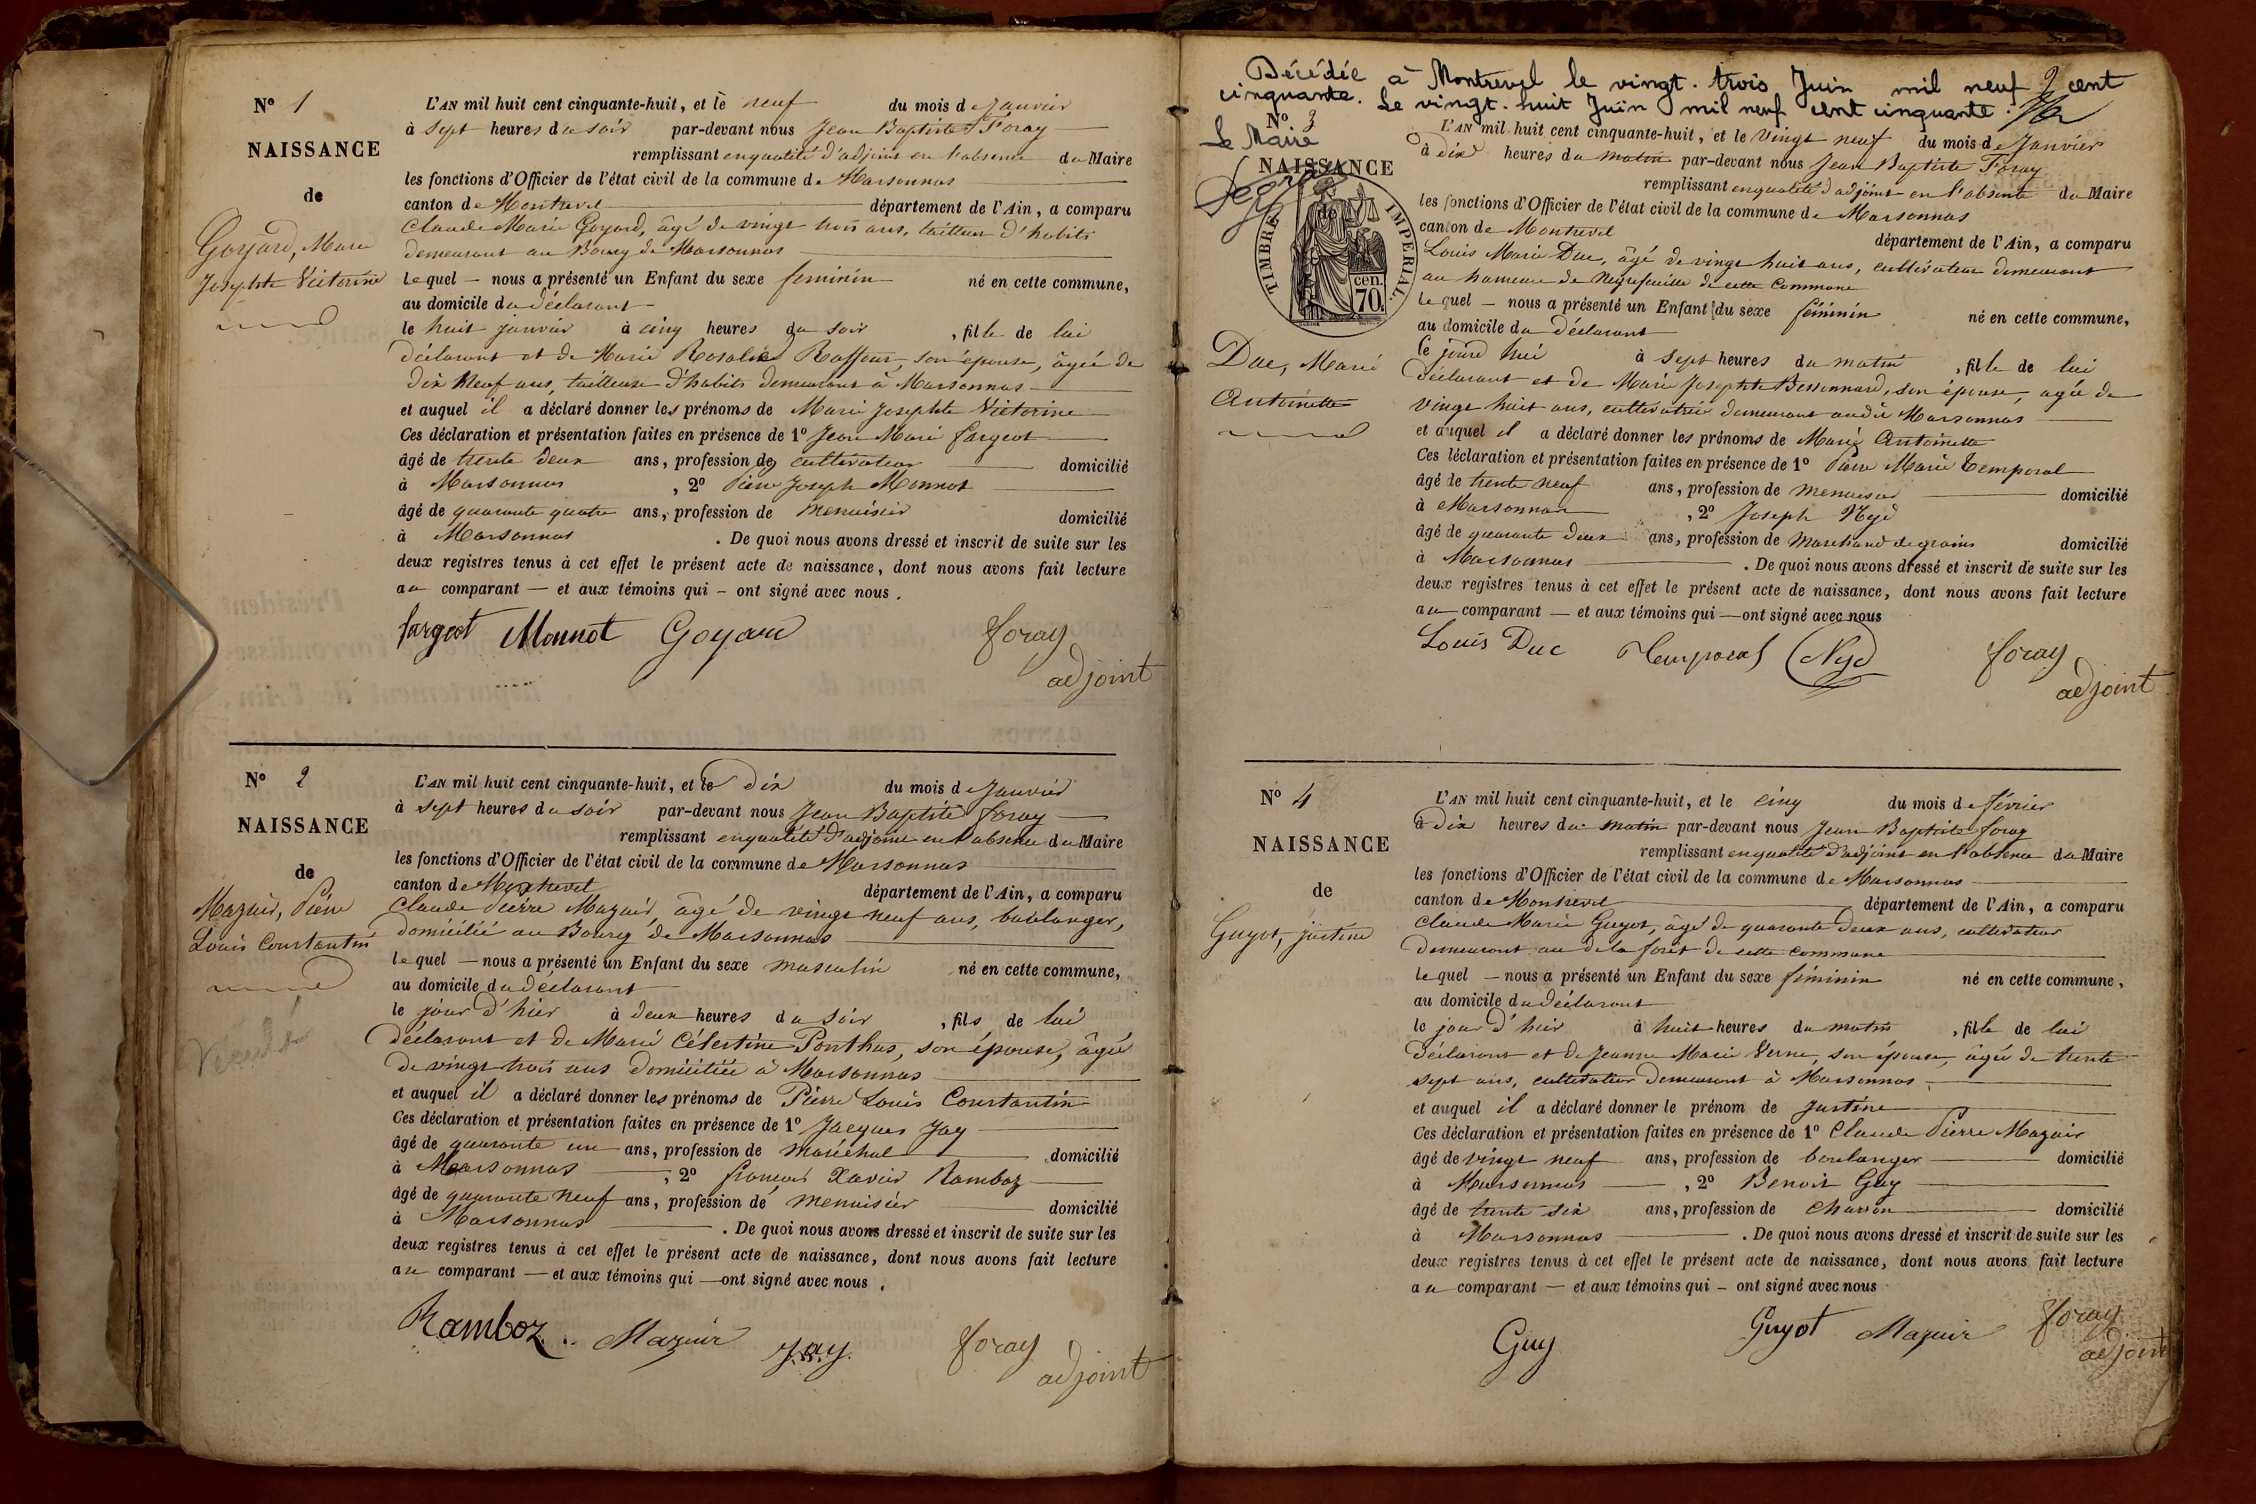 N° 1
NAISSANCE
de
Goyard, Marie
Josephte Victorine
L'AN mil huit cent cinquante-huit, et le neuf du mois de Janvier
à sept heures du soir par-devant nous Jean Baptiste Foray
remplissant en qualité d'adjoint en l'absence du Maire
les fonctions d'Officier de l'état civil de la commune de Marsonnas
canton de Montrevel département de l'Ain, a comparu
Claude Marie Goyard, âgé de vingt trois ans, tailleur d'habits
demeurant au Bourg de Marsonnas
lequel nous a présenté un Enfant du sexe feminin né en cette commune,
au domicile du déclarant
le huit janvier à cinq heures du soir, fille de lui
déclarant et de Marie Rosalie Raffour, son épouse, âgée de
dix neuf ans, tailleuse d'habits demeurant à Marsonnas
et auquel il a déclaré donner les prénoms de Marie Josephte Victorine
Ces déclaration et présentation faites en présence de 1° Jean Marie fargeot
âgé de trente deux ans, profession de cultivateur domicilié
à Marsonnas, 2° Pierre Joseph Monnot
âgé de quarante quatre ans, profession de menuisier domicilié
à Marsonnas. De quoi nous avons dressé et inscrit de suite sur les
deux registres tenus à cet effet le présent acte de naissance, dont nous avons fait lecture
au comparant — et aux témoins qui – ont signé avec nous.
fargeot Monnot Goyard foray
adjoint
N° 2
NAISSANCE
de
Mazuir, Pierre
Louis Constantin
L'AN mil huit cent cinquante-huit, et le Dix du mois de Janvier
à sept heures du soir par-devant nous Jean Baptiste foray
remplissant en qualité d'adjoint en l'absence du Maire
les fonctions d'Officier de l'état civil de la commune de Marsonnas
canton de Montrevel département de l'Ain, a comparu
Claude Pierre Mazuir, âgé de vingt neuf ans, boulanger,
domicilié au Bourg de Marsonnas
lequel — nous a présenté un Enfant du sexe masculin né en cette commune,
au domicile du déclarant
le jour d'hier à deux heures du soir, fils de lui
déclarant et de Marie Célestine Ponthus, son épouse, âgée
de vingt trois ans domiciliée à Marsonnas
et auquel il a déclaré donner les prénoms de Pierre Louis Constantin
Ces déclaration et présentation faites en présence de 1° Jacques Jay
âgé de quarante un ans, profession de maréchal domicilié
à Marsonnas, 2° françois Xavier Ramboz
âgé de quarante neuf ans, profession de menuisier domicilié
à Marsonnas. De quoi nous avons dressé et inscrit de suite sur les
deux registres tenus à cet effet le présent acte de naissance, dont nous avons fait lecture
au comparant — et aux témoins qui — ont signé avec nous.
Ramboz Mazuir Jay foray
adjoint
Décédée à Montrevel le vingt-trois Juin mil neuf cent
cinquante. Le vingt-huit Juin mil neuf cent cinquante.
Le Maire
N° 3
NAISSANCE
de
TIMBRE IMPERIAL.
70 cen.
Duc, Marie
Antoinette
L'AN mil huit cent cinquante-huit, et le vingt neuf du mois de Janvier
à dix heures du matin par-devant nous Jean Baptiste Foray
remplissant en qualité d'adjoint en l'absence du Maire
les fonctions d'Officier de l'état civil de la commune de Marsonnas
canton de Montrevel département de l'Ain, a comparu
Louis Marie Duc, âgé de vingt huit ans, cultivateur demeurant
au hameau de Negrefeuille de cette Commune
lequel — nous a présenté un Enfant du sexe féminin né en cette commune,
au domicile du déclarant
ce jourd'hui à sept heures du matin, fille de lui
déclarant et de Marie Josephte Bessonnard, son épouse, agée de
vingt huit ans, cultivatrice demeurant audit Marsonnas
et auquel il a déclaré donner les prénoms de Marie Antoinette
Ces déclaration et présentation faites en présence de 1° Pierre Marie Temporal
âgé de trente neuf ans, profession de menuisier domicilié
à Marsonnas, 2° Joseph Nyd
âgé de quarante deux ans, profession de marchand de grains domicilié
à Marsonnas. De quoi nous avons dressé et inscrit de suite sur les
deux registres tenus à cet effet le présent acte de naissance, dont nous avons fait lecture
au comparant — et aux témoins qui — ont signé avec nous
Louis Duc Temporal Nyd foray
adjoint
N° 4
NAISSANCE
de
Guyot, Justine
L'AN mil huit cent cinquante-huit, et le cinq du mois de février
à Dix heures du matin par-devant nous Jean Baptiste foray
remplissant en qualité d'adjoint en l'absence du Maire
les fonctions d'Officier de l'état civil de la commune de Marsonnas
canton de Montrevel département de l'Ain, a comparu
Claude Marie Guyot, âgé de quarante deux ans, cultivateur
demeurant au de la forêt de cette commune
lequel — nous a présenté un Enfant du sexe féminin né en cette commune,
au domicile du déclarant
le jour d'hier à huit heures du matin, fille de lui
déclarant et de Jeanne Marie Verne, son épouse, âgée de trente
sept ans, cultivateur demeurant à Marsonnas
et auquel il a déclaré donner le prénom de Justine
Ces déclaration et présentation faites en présence de 1° Claude Pierre Mazuir
âgé de vingt neuf ans, profession de boulanger domicilié
à Marsonnas, 2° Benoit Guy
âgé de trente six ans, profession de charron domicilié
à Marsonnas. De quoi nous avons dressé et inscrit de suite sur les
deux registres tenus à cet effet le présent acte de naissance, dont nous avons fait lecture
au comparant — et aux témoins qui – ont signé avec nous
Guy Guyot Mazuir foray
adjoint